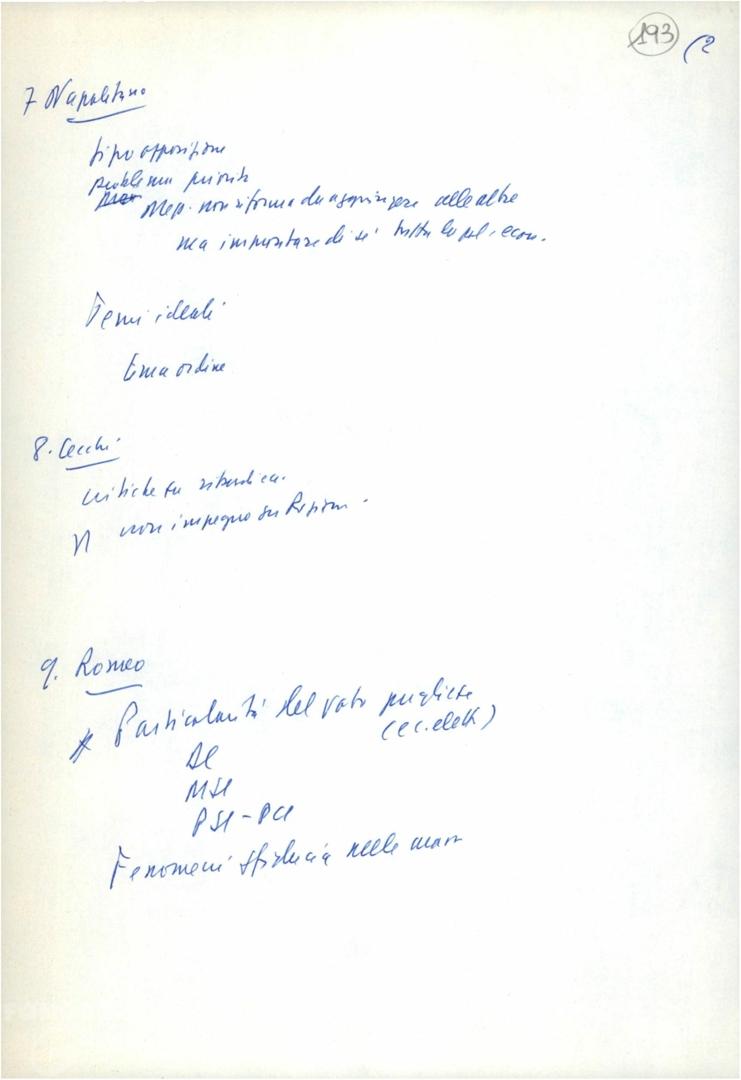 193 (2
7 Napolitano
tipo opposizione
problema priorità
Mep. non riforma da aggiungere alle altre
ma impostare di sé tutta la pol. econ.
Temi ideali
tema ordine
8. Cecchi
critiche su
non impegno su Regioni.
9. Romeo
Particolarità del voto pugliese
(ec. elett)
DC
MSI
PSI-PCI
Fenomeni sfiducia nelle masse